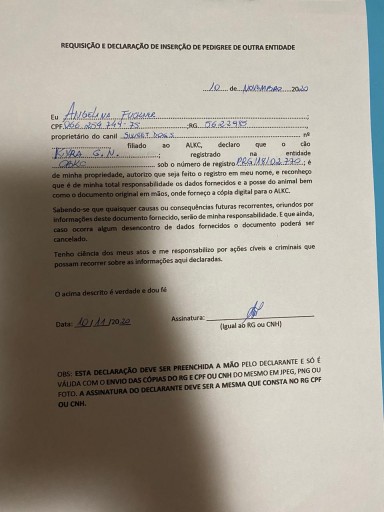 REQUISIÇÃO E DECLARAÇÃO DE INSERÇÃO DE PEDIGREE DE OUTRA ENTIDADE
10 de NOVEMBRO 2020
Eu ANGELINA
CPF 066.259.744-75 ;RG 5622985
proprietário do canil SWEET DOGS nº
filiado ao ALKC, declaro que o cão
KYRA G.N. ; registrado na entidade
sob o número de registro PRG118/02.770 ; é
de minha propriedade, autorizo que seja feito o registro em meu nome, e reconheço
que é de minha total responsabilidade os dados fornecidos e a posse do animal bem
como o documento original em mãos, onde forneço a cópia digital para o ALKC.
Sabendo-se que quaisquer causas ou consequências futuras recorrentes, oriundos por
informações deste documento fornecido, serão de minha responsabilidade. E que ainda,
caso ocorra algum desencontro de dados fornecidos o documento poderá ser
cancelado.
Tenho ciência dos meus atos e me responsabilizo por ações cíveis e criminais que
possam recorrer sobre as informações aqui declaradas.
O acima descrito é verdade e dou fé
Data: 10/11/2020 Assinatura:
(Igual ao RG ou CNH)
OBS: ESTA DECLARAÇÃO DEVE SER PREENCHIDA A MÃO PELO DECLARANTE E SÓ É
VÁLIDA COM O ENVIO DAS CÓPIAS DO RG E CPF OU CNH DO MESMO EM JPEG, PNG OU
FOTO. A ASSINATURA DO DECLARANTE DEVE SER A MESMA QUE CONSTA NO RG CPF
OU CNH.